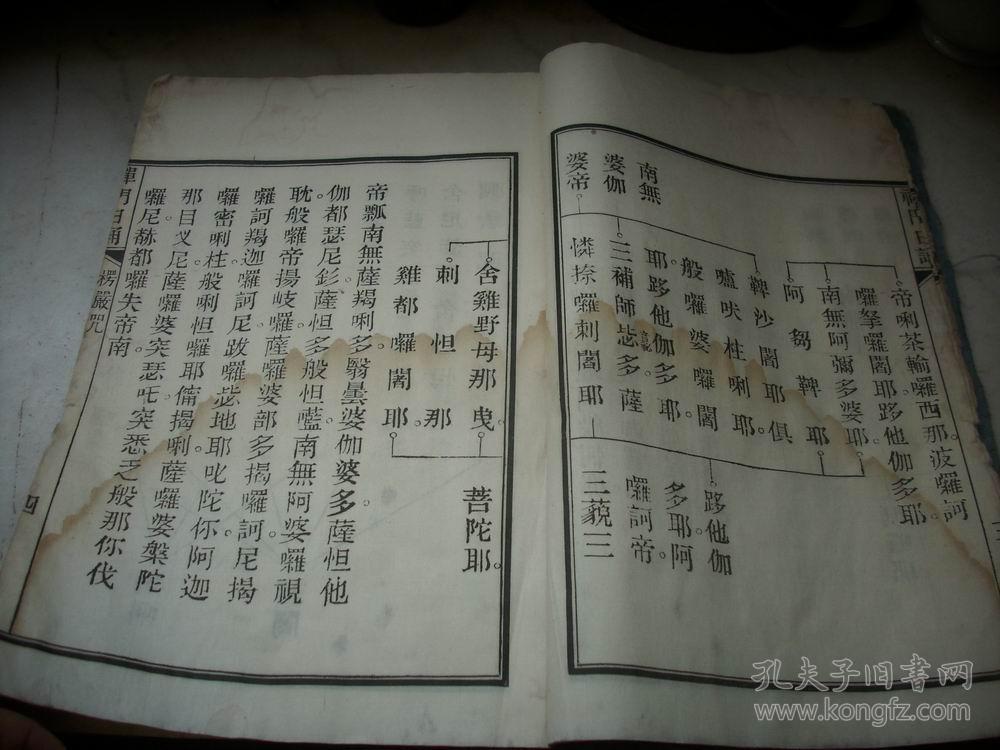 帝唎茶輸囉西那。波囉訶
囉拏囉闍耶。跢他伽多耶。
南無阿彌多婆耶。
阿芻鞞耶
鞞沙闍耶俱
嚧吠柱唎耶。
般囉婆囉闍
跢他伽
多耶。阿
南無
耶。跢他伽多耶。
囉訶帝
婆伽
三補師毖多。薩
三藐三
婆帝
憐捺囉剌闍耶
舍雞野母那曳。
菩陀耶。
剌怛那
雞都囉闍耶。
帝瓢南無薩羯唎。多翳曇婆伽婆多。薩怛他
伽都瑟尼釤。薩怛多般怛嚂。南無阿婆囉視
耽。般囉帝揚岐囉。薩囉婆部多揭囉訶。尼揭
囉訶羯迦囉訶尼。跋囉毖地耶。叱陀你。阿迦
囉密唎柱。般唎怛囉耶儜揭唎。薩囉婆槃陀
那目叉尼。薩囉婆突瑟吒。突悉乏般那你伐
囉尼。赭都囉失帝南。
禪門日誦
楞嚴咒
四
孔夫子旧書网
www.kongfz.com